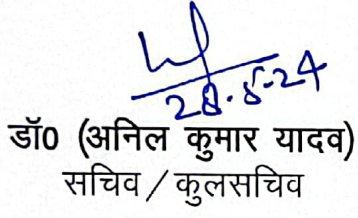 28.5.24
डॉ0 (अनिल कुमार यादव)
सचिव / कुलसचिव